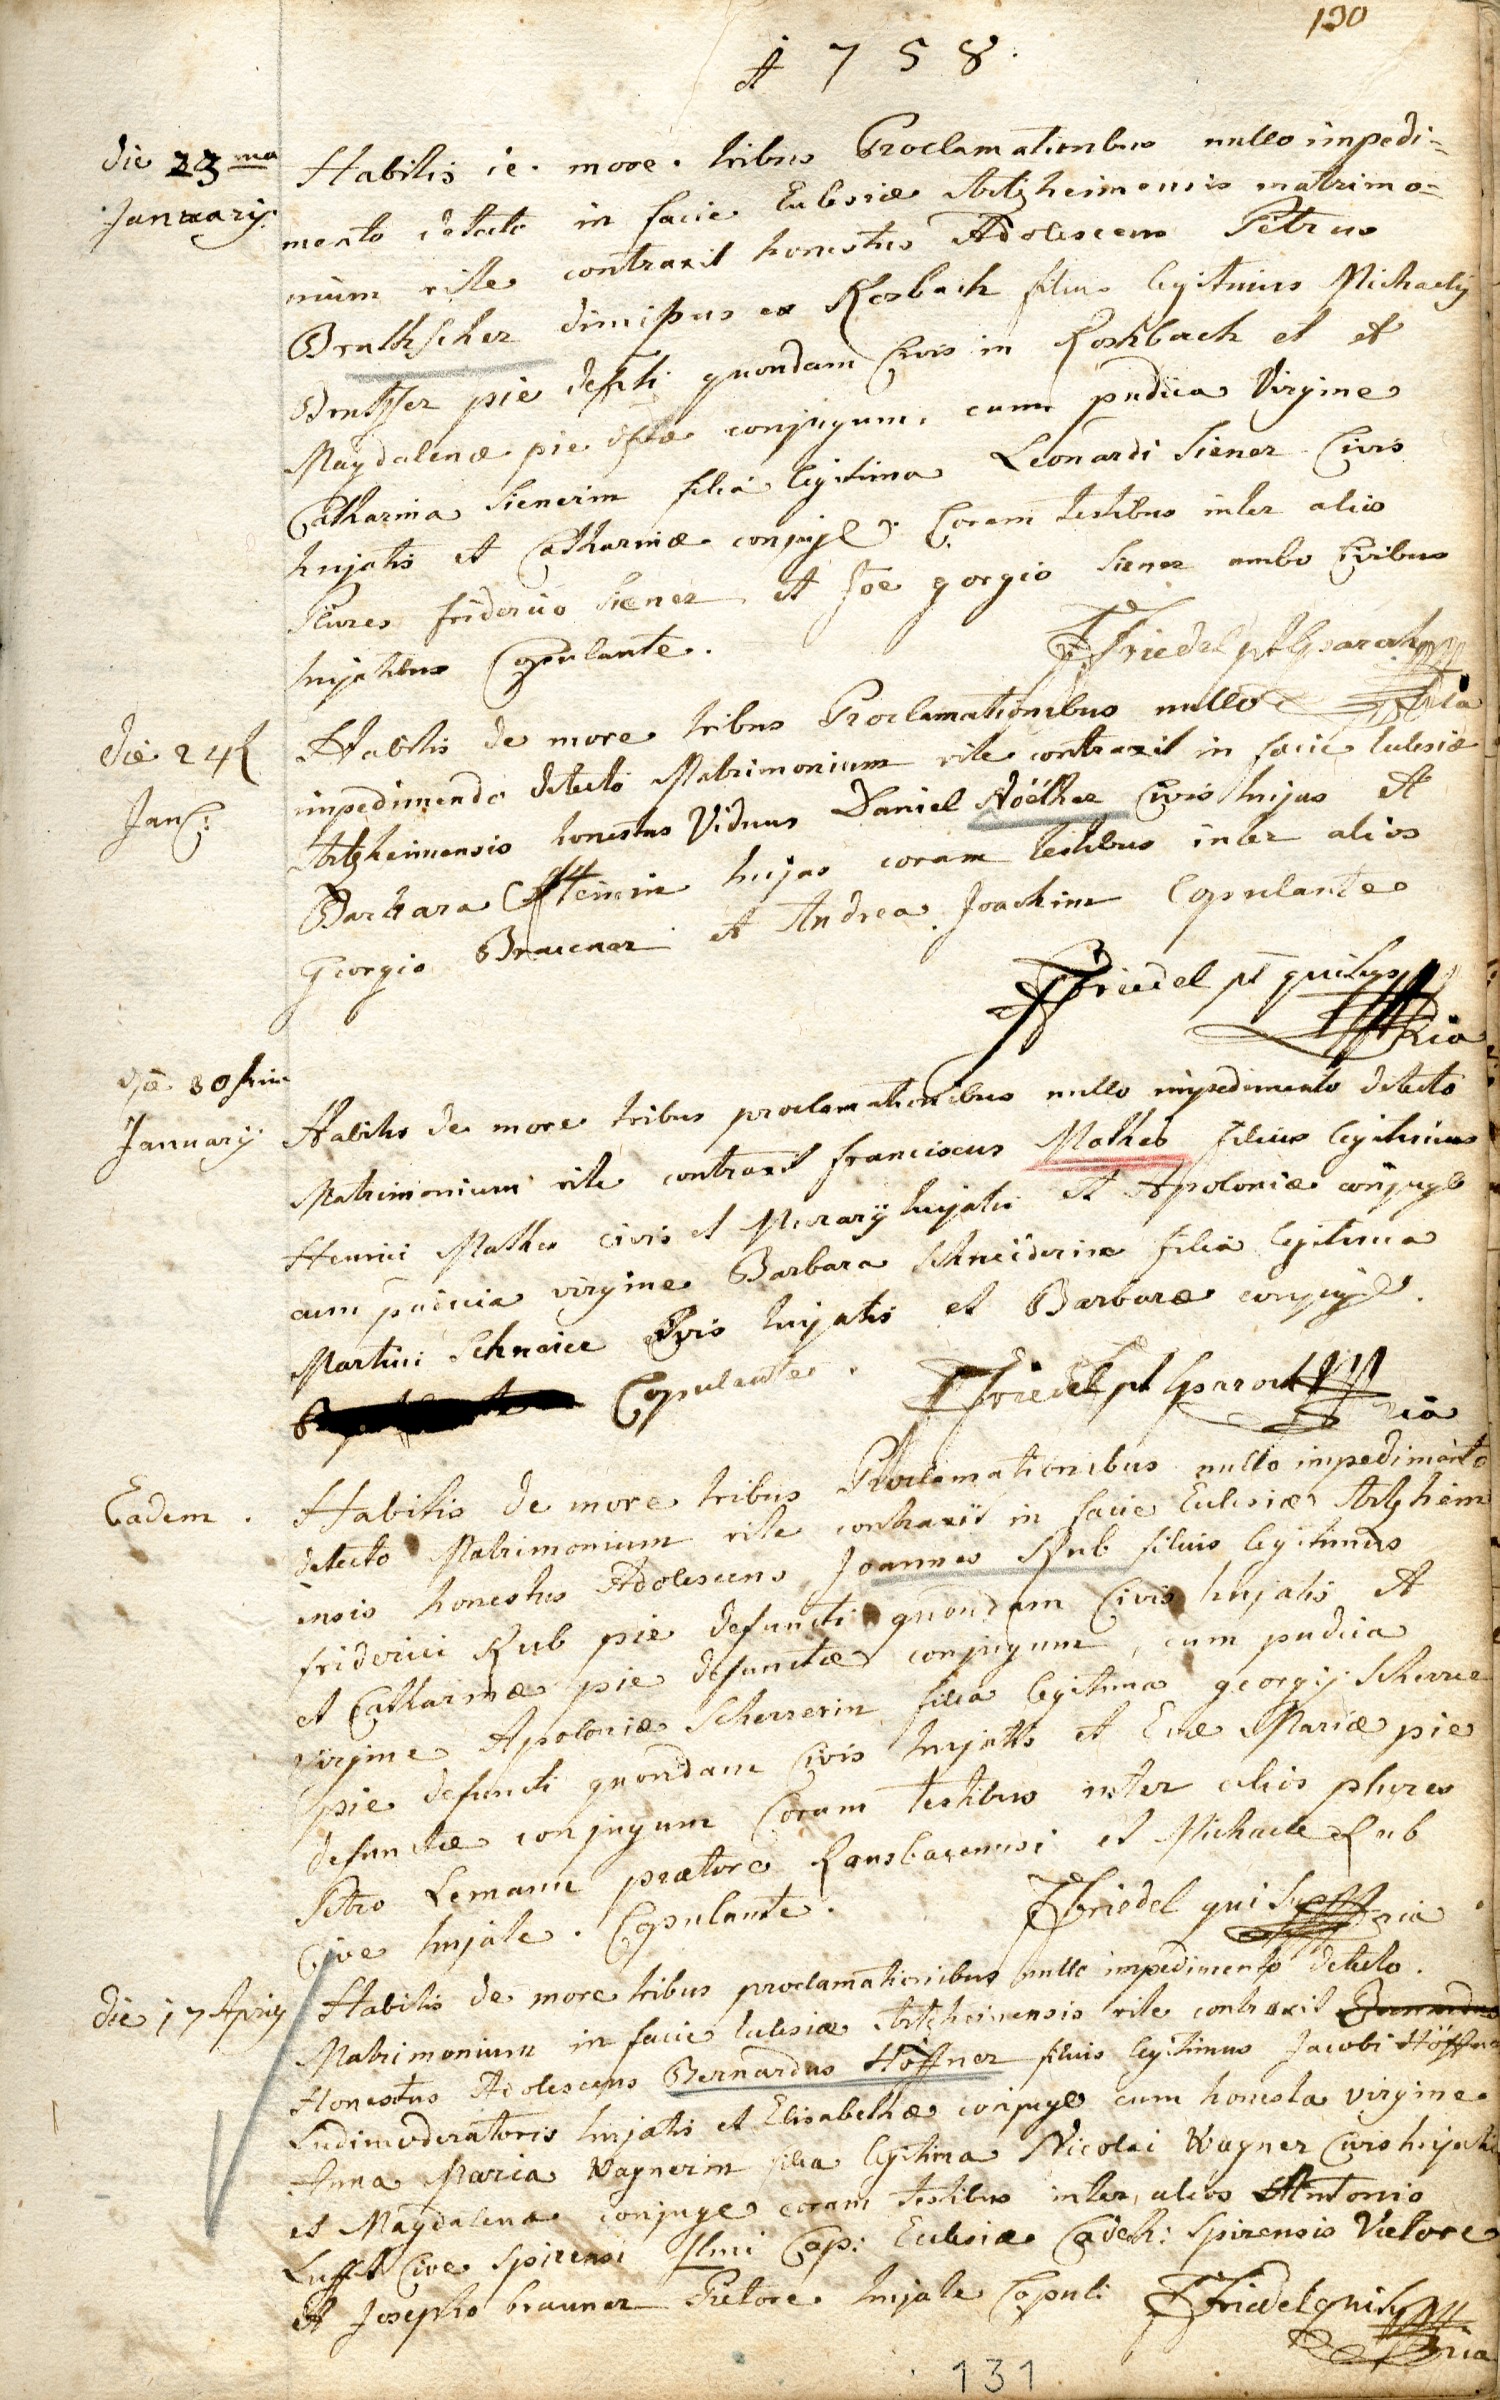 130
A 1758.
die 23ma Habitis de more tribus Proclamationibus nullo impedi=
January. mento detecto in facie Eclesiæ Artzheimensis matrimo=
nium rite contraxit honestus Adolescens Petrus
Bruthscher ex Rosbach filius legitimus Michaelij
pie quondam Civis in Roshbach et et
Magdalenæ pie conjugum, cum pudica Virgine
Catharina Sienerin filia legitima Leonardi Siener Civis
hujatis et Catharinæ conjug. Coram testibus inter alios
Plures friderico Siener et Joe gorgio Siener ambo Civibus
hujatibus Copulante. Friedel
die 24 Habitis de more tribus Proclamationibus nullo
Jan: impedimendo detecto Matrimonium rite contraxit in facie Eclesiæ
Artzheimensis honestus Viduus Daniel Nöether Civis hujas et
Barbara hujas coram testibus inter alios
Georgio Brauner et Andrea Joachim Copulante
Friedel pt
die 30 Habitis de more tribus proclamationibus nullo impedimento detecto
January Matrimonium rite contraxit franciscus Mathes filius legitimus
Henrici Mathes civis et Murarij hujatis et Apoloniæ conjuge
cum pudica virgine Barbara Schneiderin filia legitima
Martini Schneier Civis hujatis et Barbaræ conjuge.
Copulante. Friedel pt
Eadem. Habitis de more tribus Proclamationibus nullo impedimento
detecto Matrimonium rite contraxit in facie Eclesiæ Artzheim
ensis honestus Adolescens Joannes Rub filius legitimus
friderici Rub pie defuncti quondam Civis hujatis et
et Catharinæ pie defunctæ conjugum, cum pudica
virgine Apoloniæ Scherrerin filia legitima georgij Scherrer
pie defuncti quondam Civis hujatis et Evæ Mariæ pie
defunctæ conjugum Coram testibus inter alios plures
Petro Lemann prætore Ransbacensi et Michaele Rub
Cive hujate. Copulante. Friedel
die 17 Aprily Habitis de more tribus proclamationibus nullo impedimento detecto.
Matrimonium in facie Eclesiæ Artzheimensis rite contraxit
Honestus Adolescens Bernardus Höffner filius legitimus Jacobi Höffner
Ludimoderatoris hujatis et Elisabethæ conjuge cum honesta virgine
Anna Maria Wagnerin filia legitima Nicolai Wagner Civis hujatis
et Magdalena conjuge coram testibus inter alios Antonio
Lufft Cive Spirensi Cap: Eclesiæ Spirensis
et Josepho brauner Pretore hujate Copuli Friedel
131